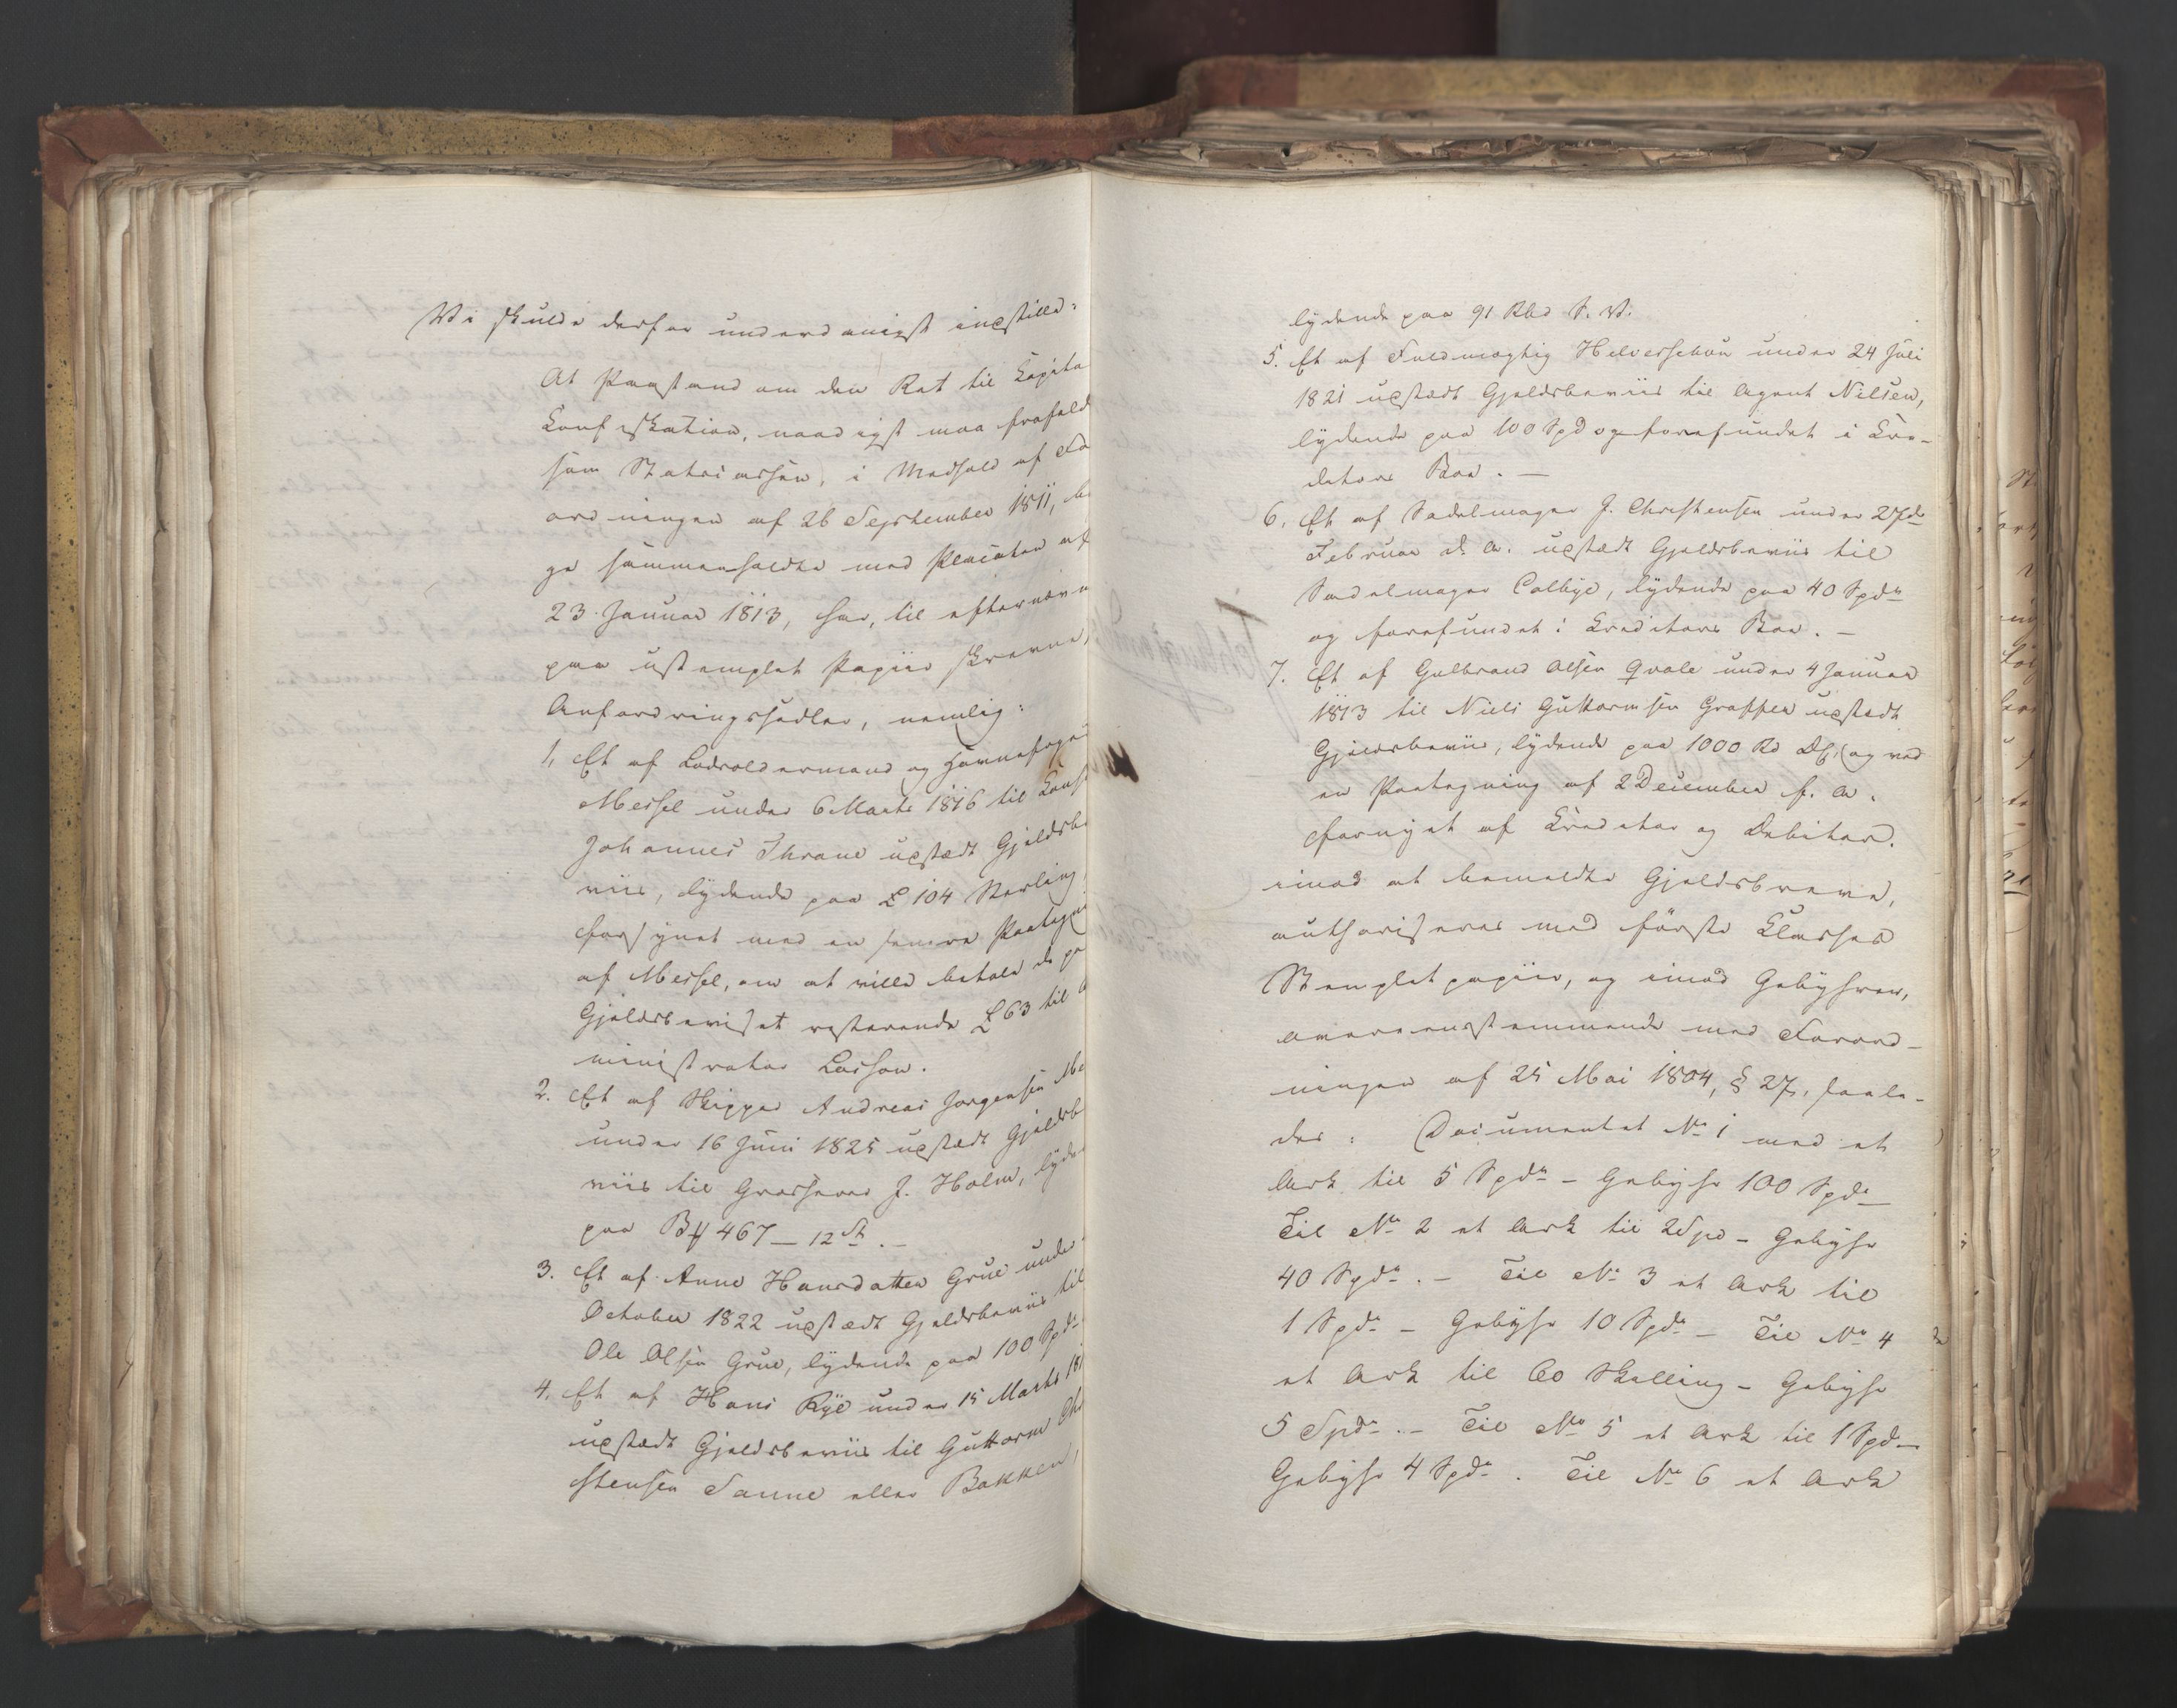 Vi skulde derfor underdanigst indstille:
At Paastand om den Ret til Kapita
Konfiskation, naadigst maa frafald
som Statscassen, i Medhold af Fo
ordningen af 26 September 1811, be
ge sammenholdte med Placaten af
23 Januar 1813, har, til efternævn
paa ustemplet Papiir skrevne,
Anfordringssedler, nemlig:
1, Et af Lodsoldermand og Havnefoge
Messel under 6 Marts 1816 til
Johannes Thrane udstædt Gjeldsbe
viis, lydende paa £ 104 Sterling,
forsynet med en senere Paategni
af Messel, om at ville betale de pa
Gjeldsbeviset resterende £ 63 til A
ministrator Lasson.
2. Et af Skipper Andreas Jørgensen
under 16 Juni 1825 udstædt Gjeldsb
viis til Grosserer J. Holm, lyde
paa 467 – 12 .–
3. Et af Anne Hansdatter Grue under
October 1822 udstædt Gjeldsbeviis til
Ole Olsen Grue, lydende paa 100 Spd
4. Et af Hans Rye under 15 Marts 181
udstædt Gjeldsbeviis til Guttorm Chr
stensen Sanne eller Bakken,
lydende paa 91 Rbd S. V.
5. Et af Fuldmægtig Helverschou under 24 Juli
1821 udstædt Gjeldsbeviis til Agent Nilsen,
lydende paa 100 Spd og forefundet i Kre-
ditors Boe. –
6. Et af Sadelmager J. Christensen under 27de
Februar d. A. udstædt Gjeldsbeviis til
Sadelmager Colbye, lydende paa 40 Spd
og forefundet i Kreditors Boe. –
7. Et af Gulbrand Olsen Qvale under 4 Januar
1813 til Niels Guttormsen udstædt
Gjeldsbeviis, lydende paa 1000 Rd og ved
en Paategning af 2 December f. A.
fornyet af Kreditor og Debitor.
imod at bemeldte Gjeldsbreve,
authoriseres med første Classes
Stemplet papiir, og imod Gebyhrer,
overeensstemmende med Forord-
ningen af 25 Mai 1804, § 27, saale-
des: Documentet No 1 med et
Ark til 5 Spd – Gebyhr 100 Spd –
Til No 2 et Ark til 2 Spd – Gebyhr
40 Spd . – Til No 3 et Ark til
1 Spd – Gebyhr 10 Spd – Til No 4
et Ark til 60 Skelling – Gebyhr
5 Spd . – Til No 5 et Ark til 1 Spd –
Gebyhr 4 Spd . Til No 6 et Ark